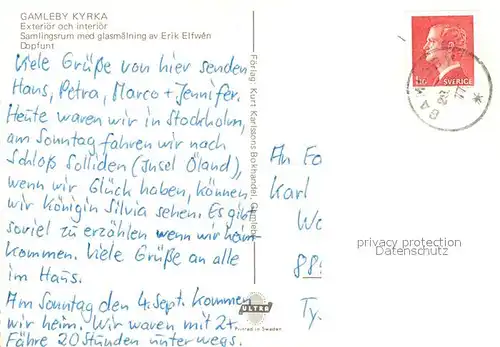 GAMLEBY KYRKA
Exteriör och interiör
Samlingsrum med glasmålning av Erik Elfwén
Dopfunt
Viele Grüße von hier senden
Hans, Petra, Marco + Jennifer.
Heute waren wir in Stockholm,
am Sonntag fahren wir nach
Schloß Solliden (Insel Öland),
wenn wir Glück haben, können
wir Königin Silvia sehen. Es gibt
soviel zu erzählen wenn wir heim
kommen. Viele Grüße an alle
im Haus.
Am Sonntag den 4. Sept. kommen
wir heim. Wir waren mit 2x
Fähre 20 Stunden unterwegs.
Förlag: Kurt Karlssons Bokhandel, Gamleby
ULTRA
Printed in Sweden
SVERIGE
An Fa
Karl
privacy protection
Datenschutz